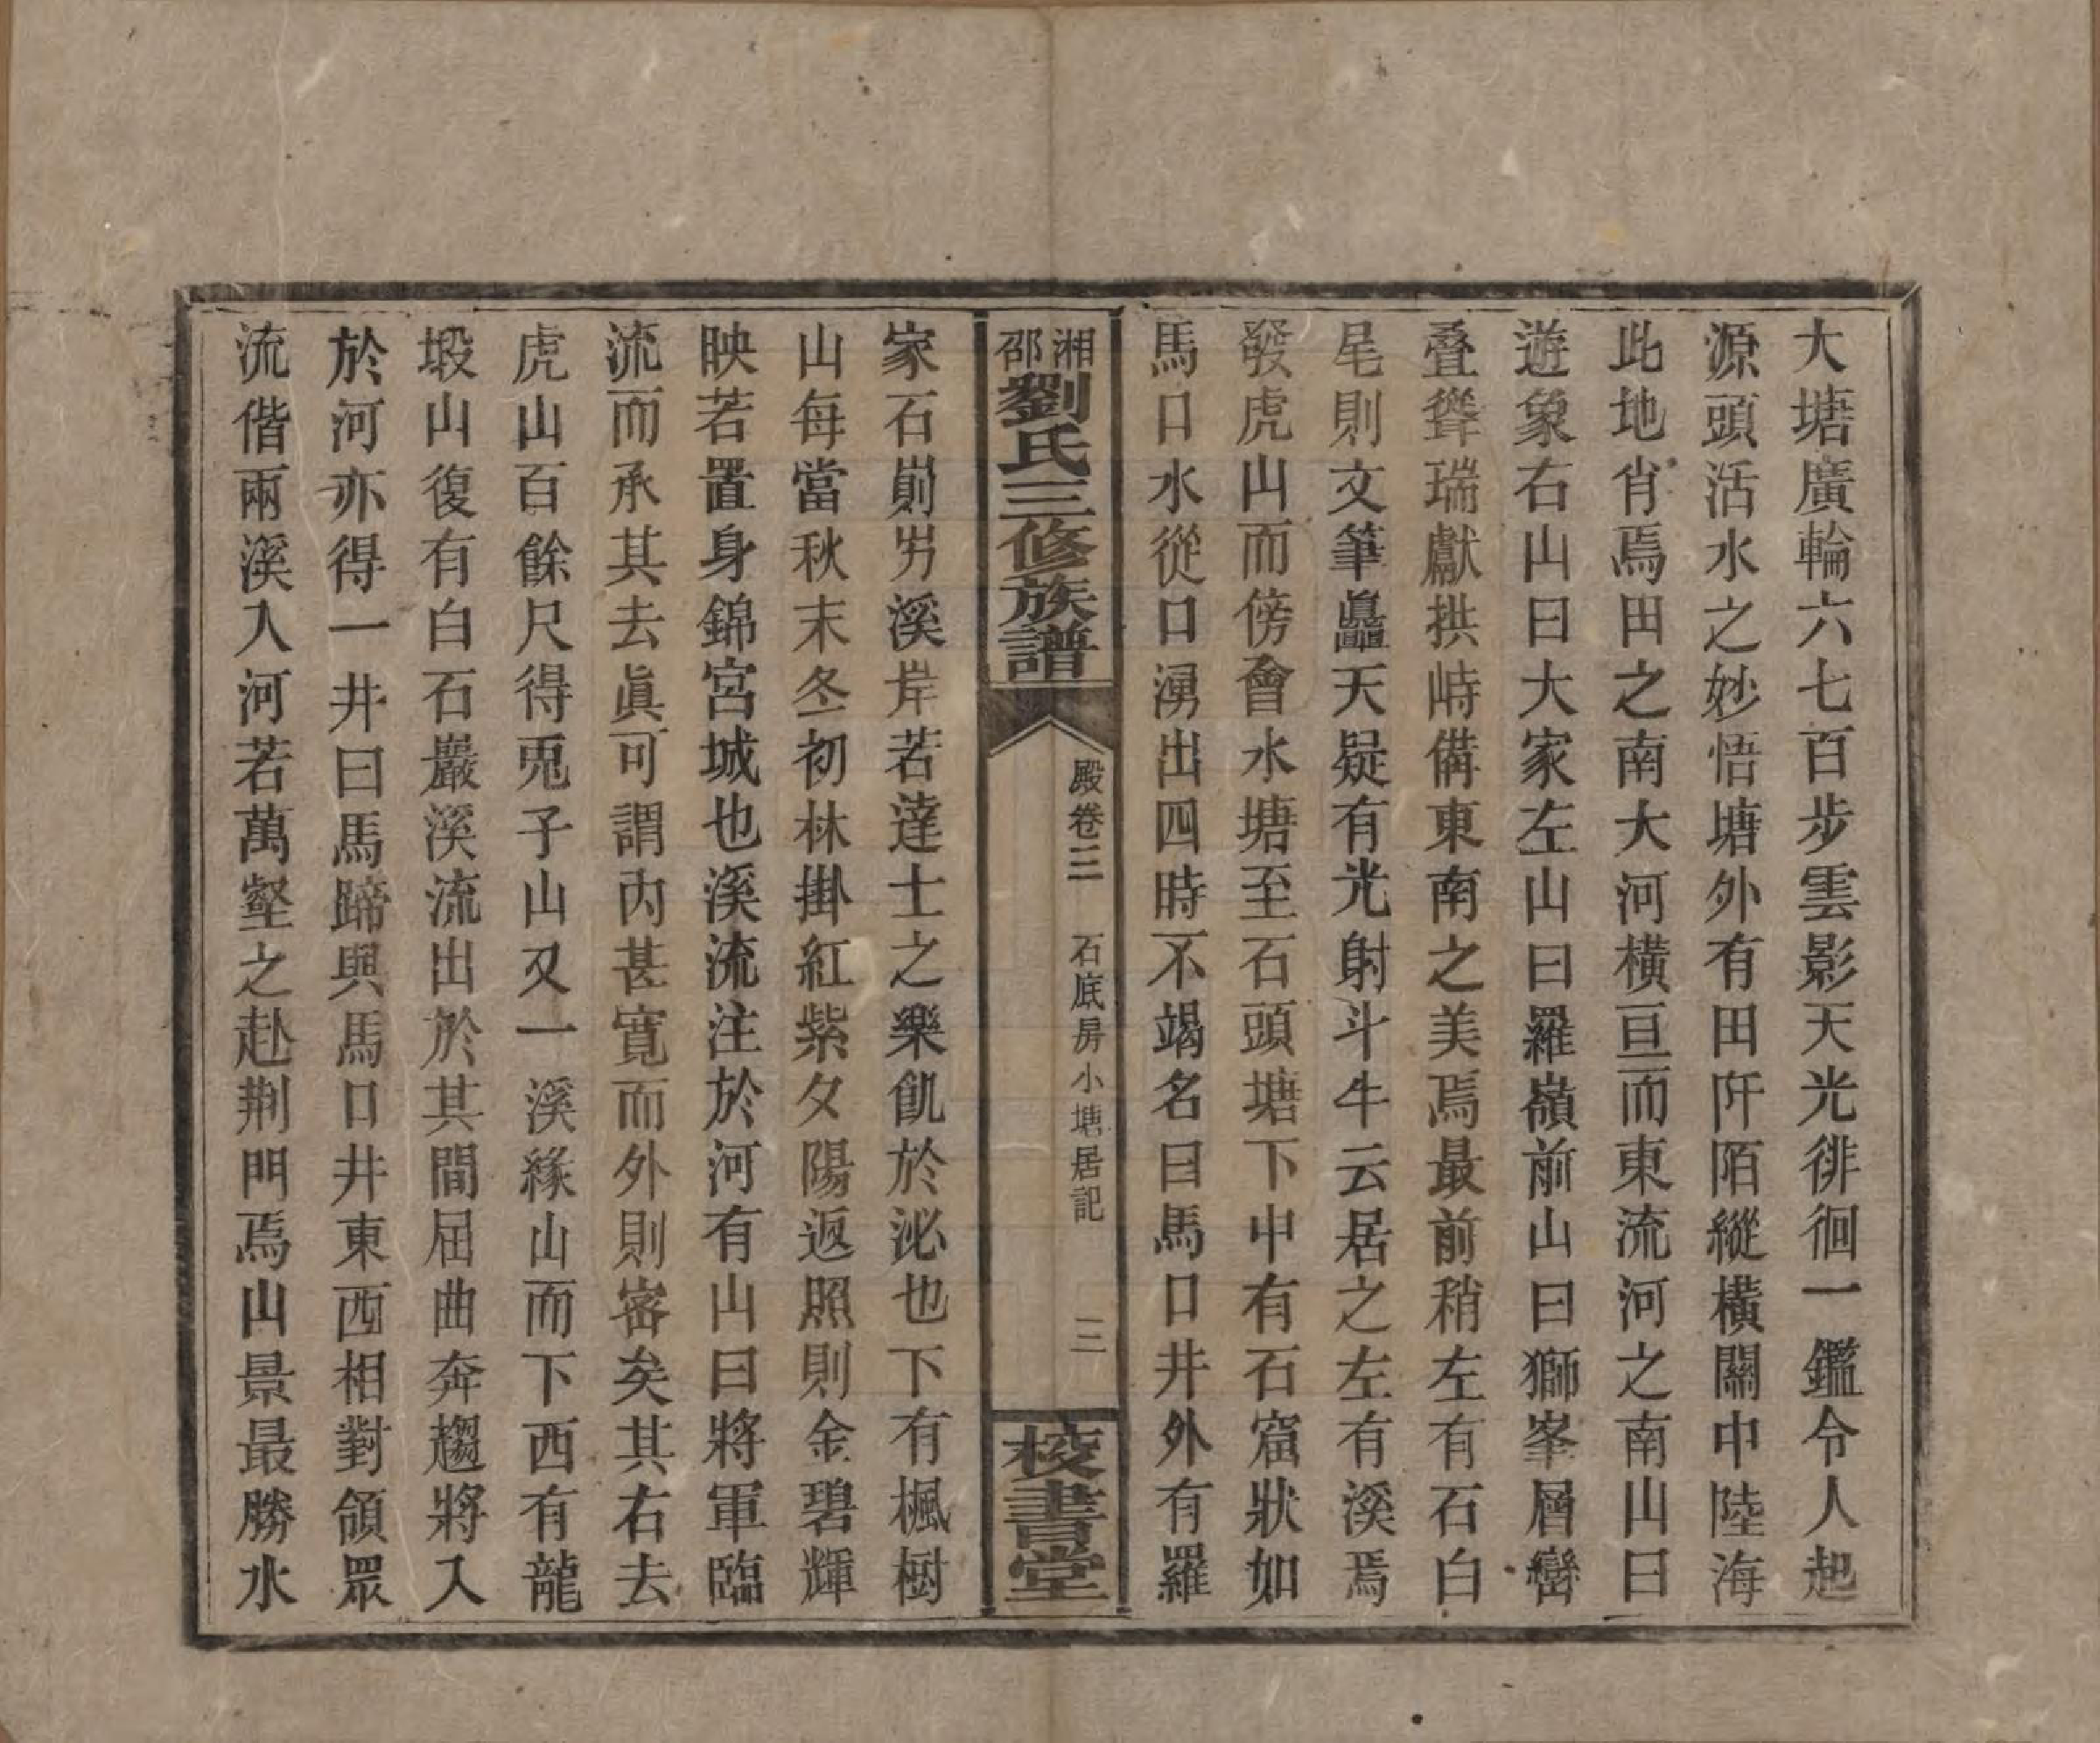 大塘廣輪六七百步雲影天光徘徊一鑑令人起
源頭活水之妙悟塘外有田阡陌縱橫關中陸海
此地肖焉田之南大河橫亘而東流河之南山曰
遊象右山曰大家左山曰羅嶺前山曰獅峯層巒
叠聳瑞獻拱峙備東南之美焉最前稍左有石白
尾則文筆矗天疑有光射斗牛云居之左有溪焉
發虎山而傍會水塘至石頭塘下中有石窟狀如
馬口水從口湧出四時不竭名曰馬口井外有羅
湘邵劉氏三修族譜
殿卷三 石底房小塘居記 三
校書堂
家石崱屴溪岸若達士之樂飢於泌也下有楓樹
山每當秋末冬初林掛紅紫夕陽返照則金碧輝
映若置身錦宮城也溪流注於河有山曰將軍臨
流而承其去眞可謂內甚寬而外則密矣其右去
虎山百餘尺得兎子山又一溪緣山而下西有龍
塅山復有白石巖溪流出於其間屈曲奔趨將入
於河亦得一井曰馬蹄與馬口井東西相對領眾
流偕兩溪入河若萬壑之赴荆門焉山景最勝水